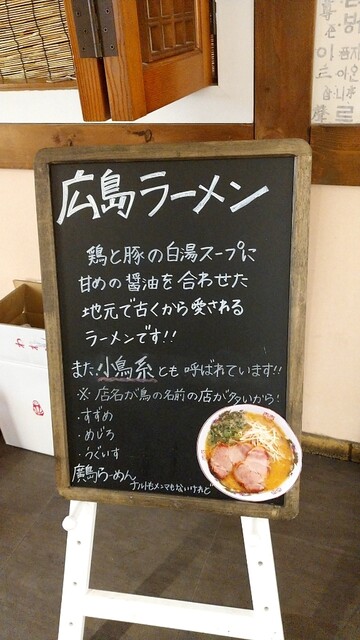 広島ラーメン
鶏と豚の白湯スープに
甘めの醤油を合わせた
地元で古くから愛される
ラーメンです!!
また、小鳥系とも呼ばれています!!
※店名が鳥の名前の店が多いから!
・すずめ
・めじろ
・うぐいす
廣島らーめん
ナルトもメンマもないけれど